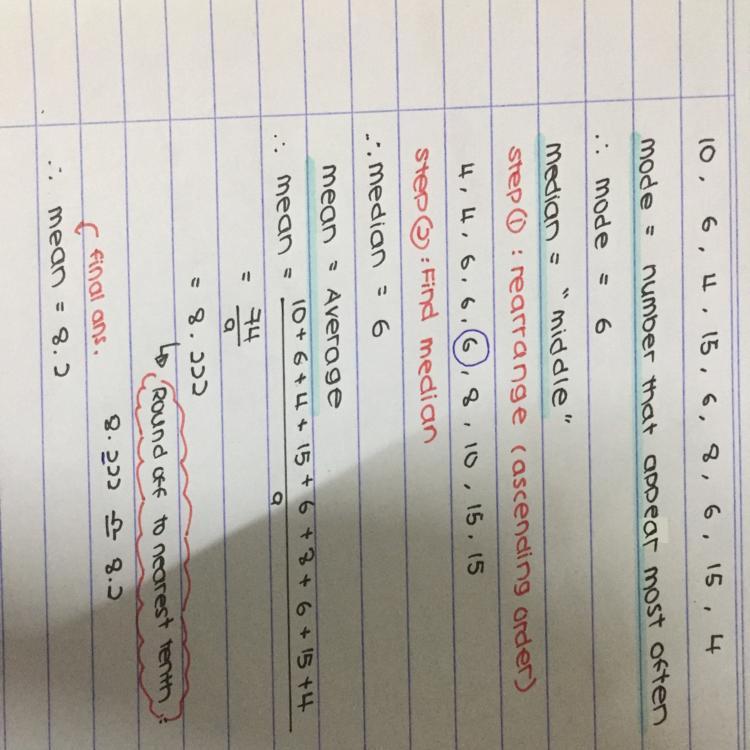 10, 6, 4, 15, 6, 8, 6, 15, 4
mode = number that appear most often
∴ mode = 6
median = "middle"
step ① : rearrange (ascending order)
4, 4, 6, 6, 6, 8, 10, 15, 15
step ② : Find median
∴ median = 6
mean = Average
∴ mean = 10 + 6 + 4 + 15 + 6 + 8 + 6 + 15 + 4
9
= 74
9
= 8.222
↳ Round off to nearest tenth:
8.222 ≏ 8.2
final ans.
∴ mean = 8.2